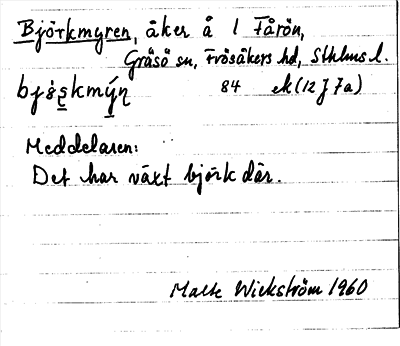 Björkmyren, åker å 1 Fårön,
Gräsö sn, Frösåkers hd, Sthlms l.
84 ek (12 J 7a)
Meddelaren:
Det har växt björk där.
Malte Wickström 1960